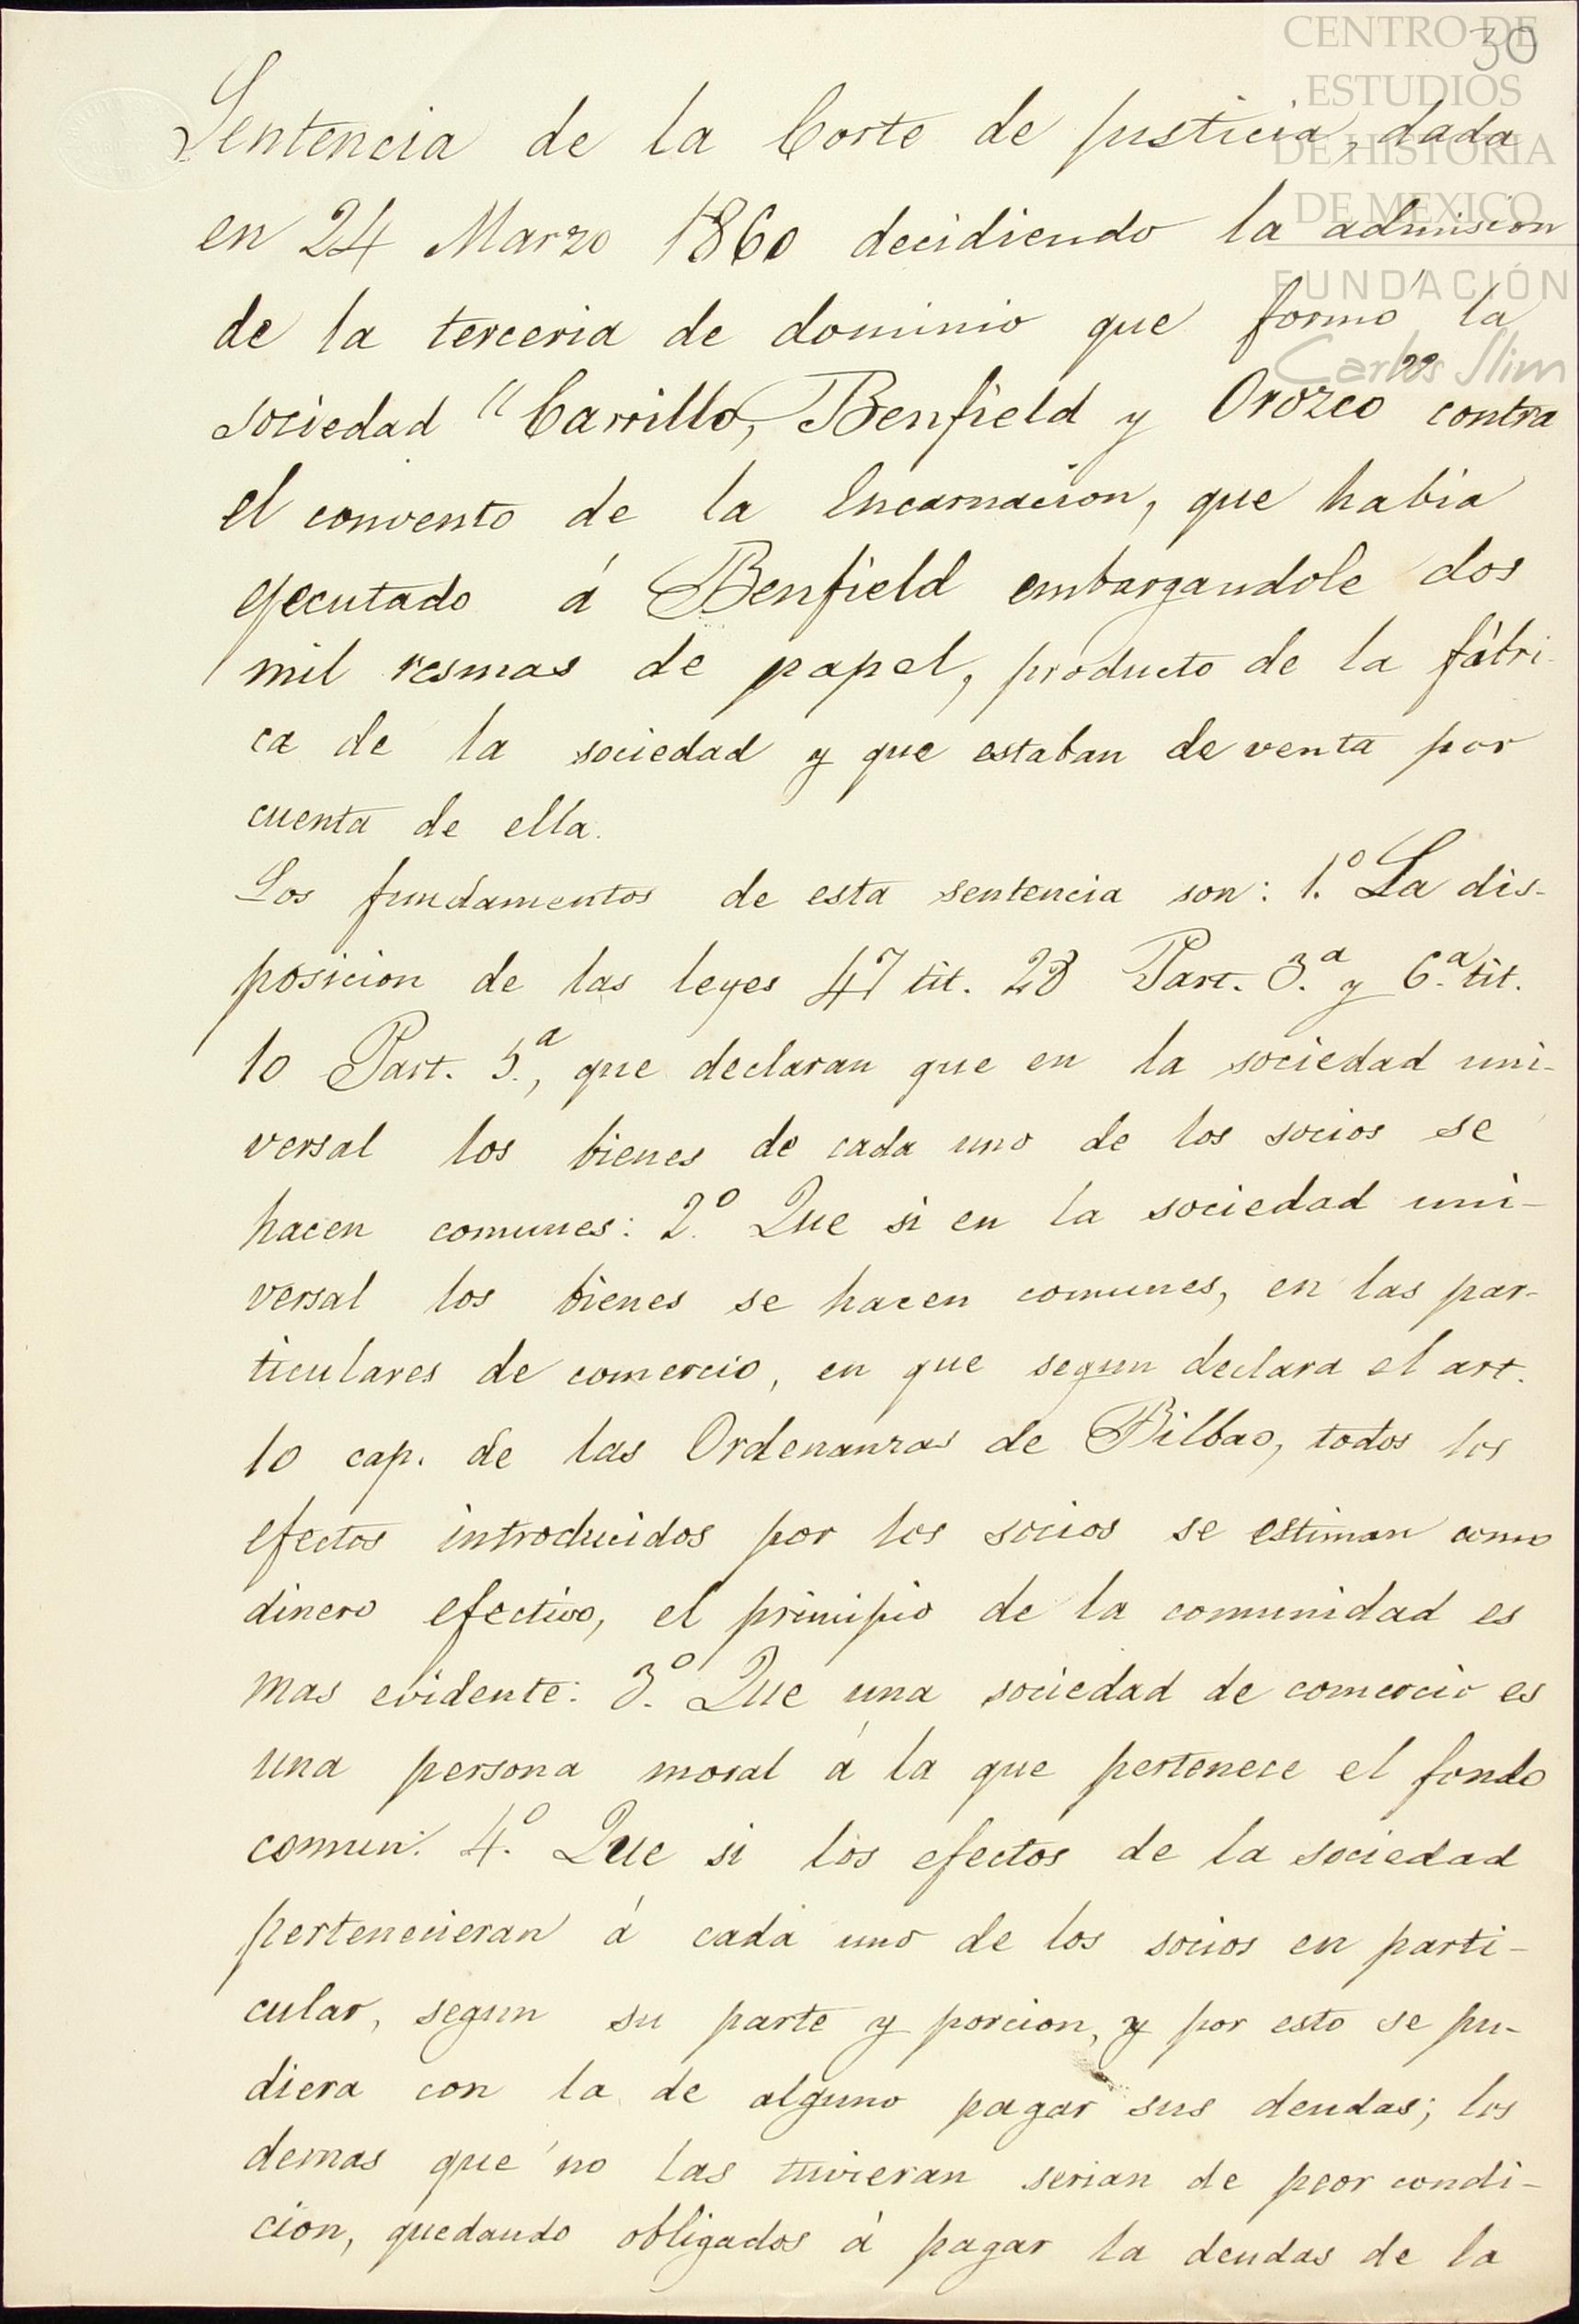 30
CENTRO DE
ESTUDIOS
DE HISTORIA
DE MEXICO
FUNDACIÓN
Carlos Slim
Sentencia de la Corte de justicia, dada
en 24 Marzo 1860 decidiendo la admision
de la terceria de dominio que formó la
sociedad "Carrillo, Benfield y Orozco" contra
el convento de la Encarnacion, que habia
ejecutado á Benfield embargandole dos
mil resmas de papel, producto de la fábri-
ca de la sociedad y que estaban de venta por
cuenta de ella.
Los fundamentos de esta sentencia son: 1.º La dis-
posicion de las leyes 47 tit. 28 Part. 3.ª y 6.ª tit.
10 Part. 5.ª, que declaran que en la sociedad uni-
versal los bienes de cada uno de los socios se
hacen comunes: 2.º Que si en la sociedad uni-
versal los bienes se hacen comunes, en las par-
ticulares de comercio, en que segun declara el art.
10 cap. de las Ordenanzas de Bilbao, todos los
efectos introducidos por los socios se estiman como
dinero efectivo, el principio de la comunidad es
mas evidente: 3.º Que una sociedad de comercio es
una persona moral á la que pertenece el fondo
comun: 4.º Que si los efectos de la sociedad
pertenecieran á cada uno de los socios en parti-
cular, segun su parte y porcion, y por esto se pu-
diera con la de alguno pagar sus deudas; los
demas que no las tuvieran serian de peor condi-
cion, quedando obligados á pagar la deudas de la